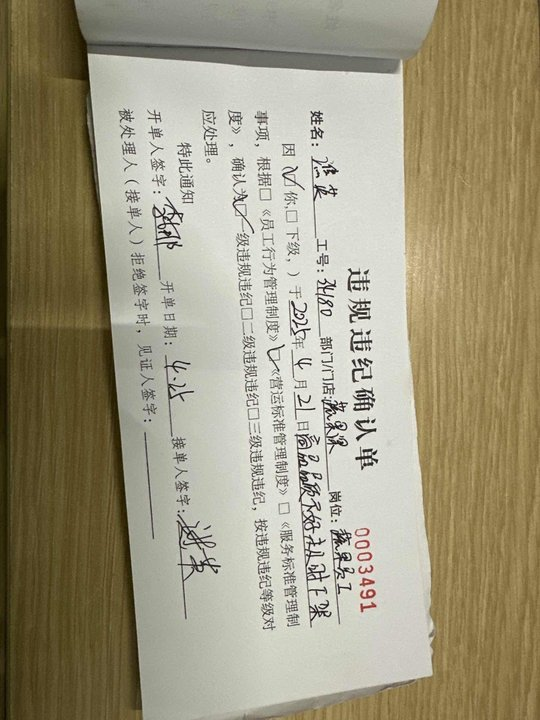 违规违纪确认单
0003491
姓名： 工号： 部门/门店：蔬果课 岗位：蔬果员工
因（☑你，□下级，）于2025年4月21日商品品质不好未及时下架
事项，根据□《员工行为管理制度》☑《营运标准管理制度》□《服务标准管理制
度》，确认为☑一级违规违纪□二级违规违纪□三级违规违纪，按违规违纪等级对
应处理。
特此通知
开单人签字： 开单日期：4.25 接单人签字：
被处理人（接单人）拒绝签字时，见证人签字：